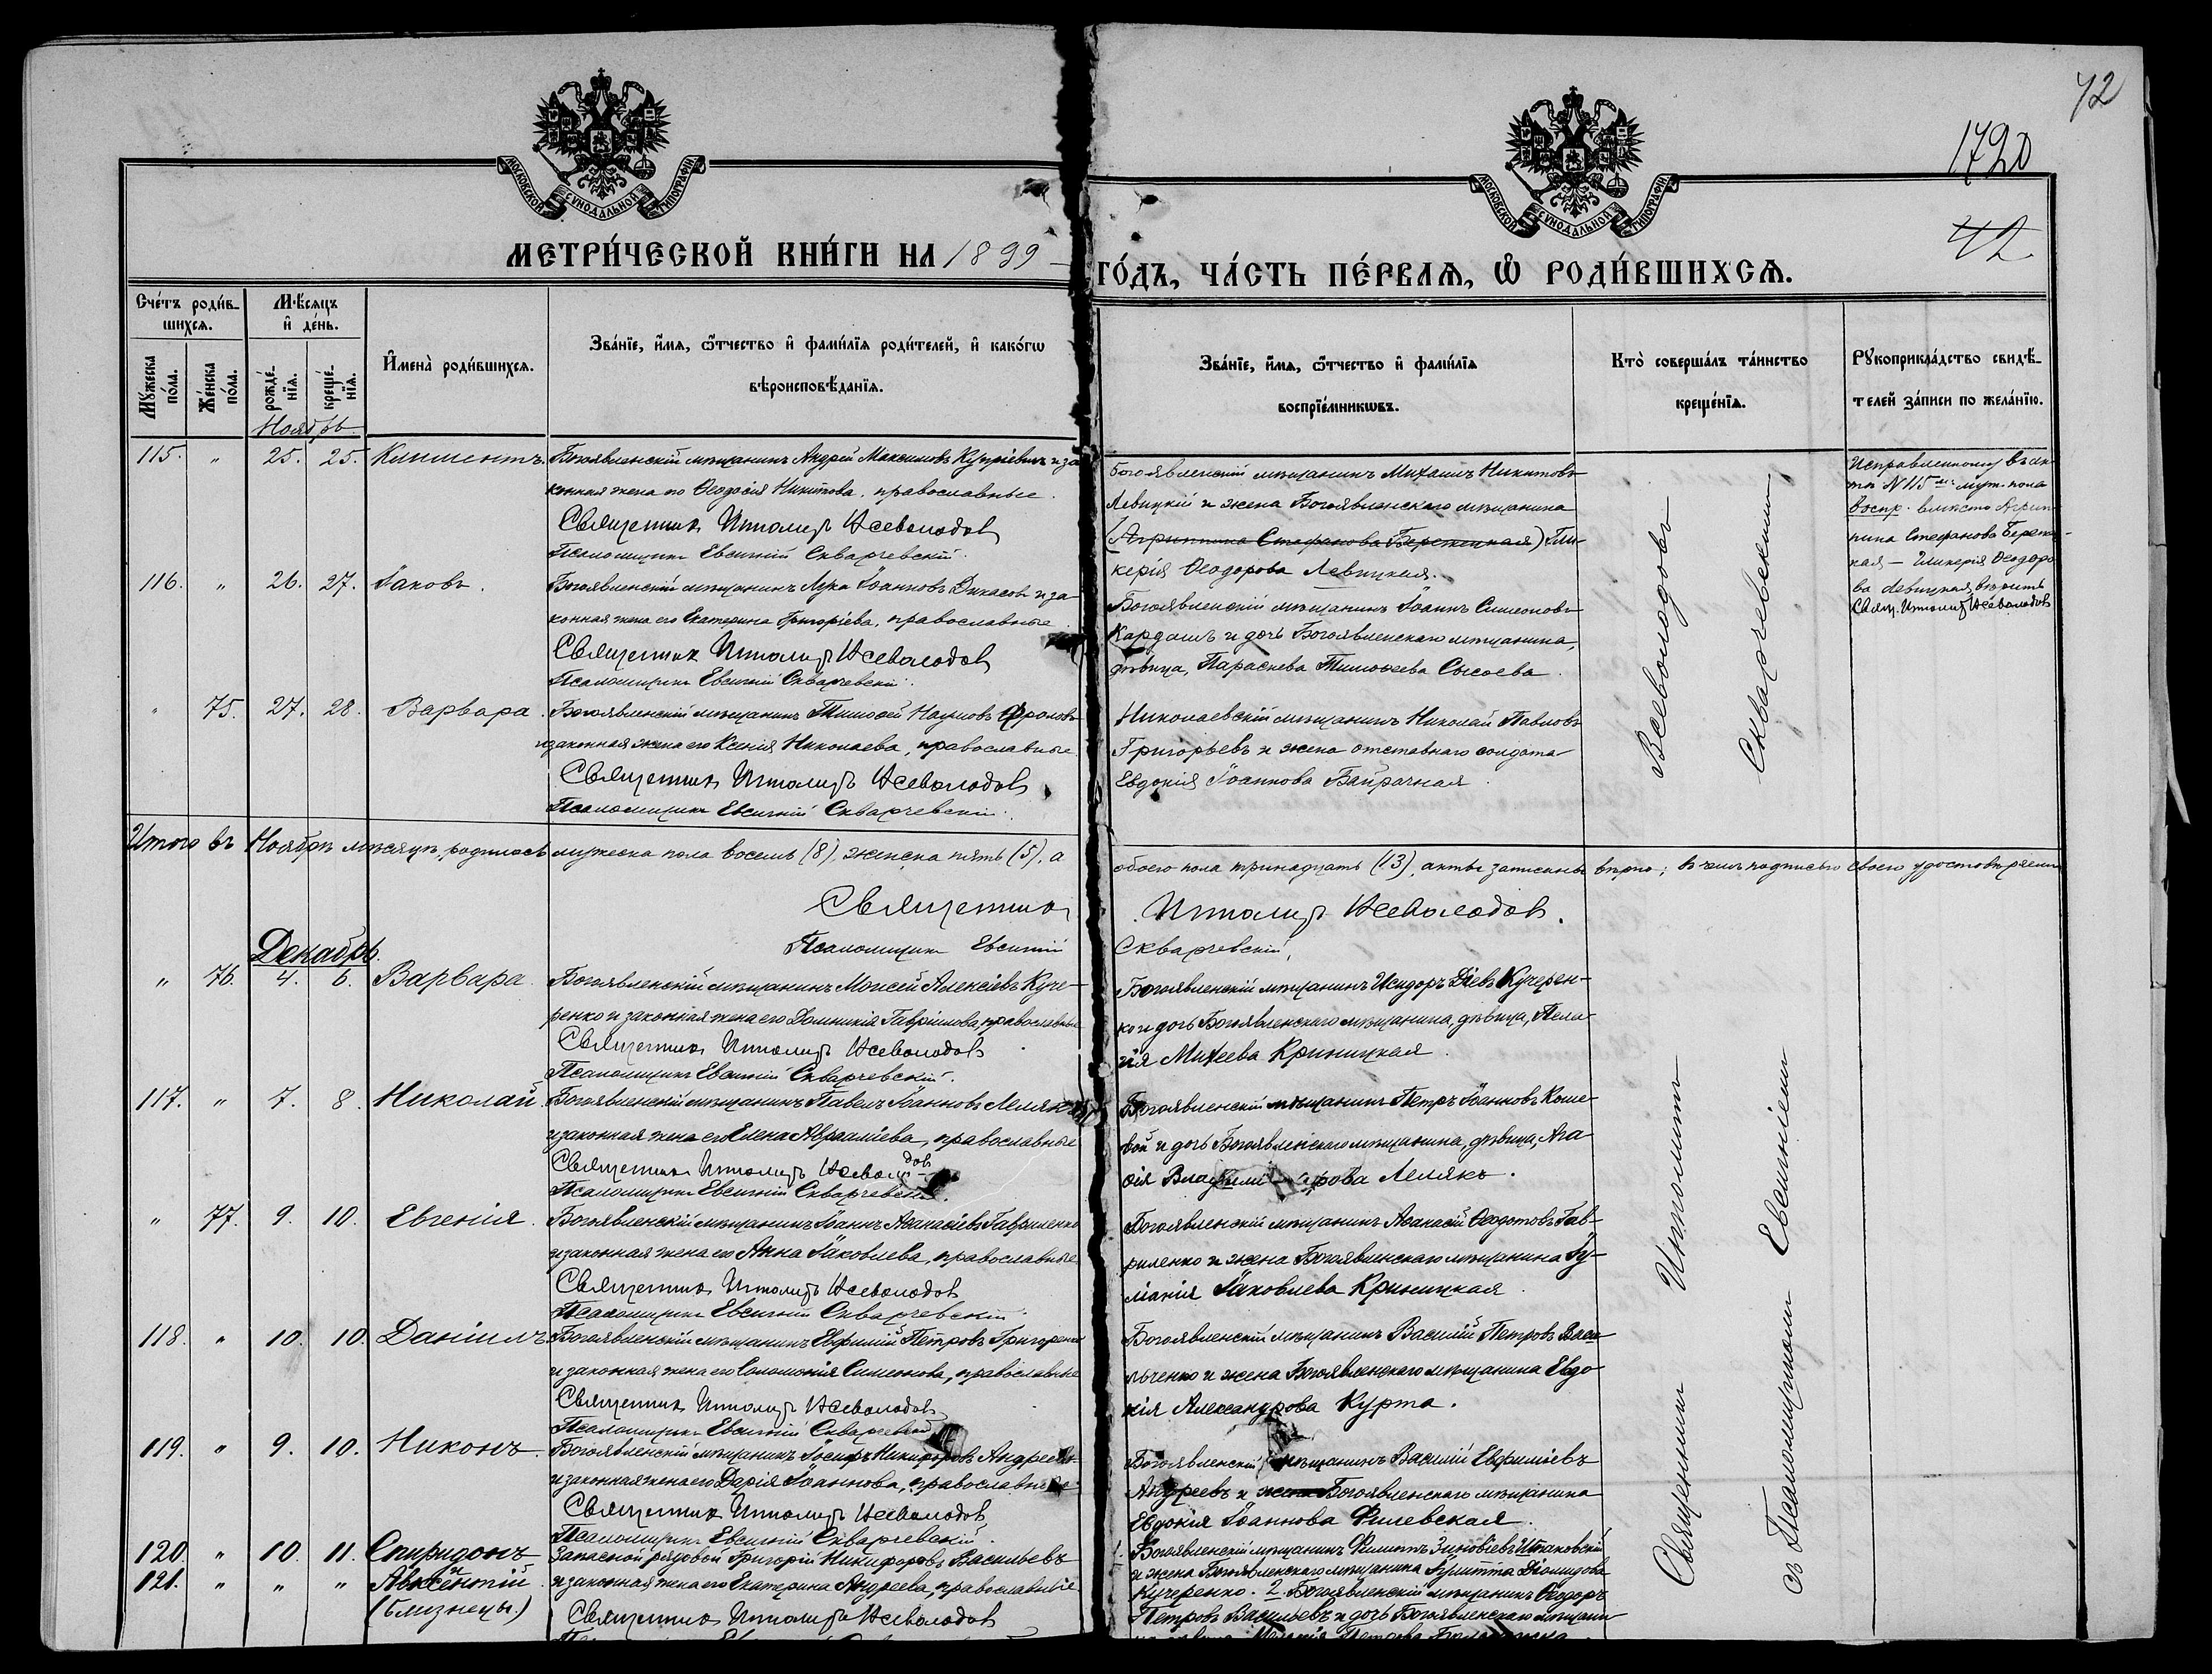 42
1720
МОСКОВСКОЙ СУНОДАЛЬНОЙ ТИПОГРАФІИ
МОСКОВСКОЙ СУНОДАЛЬНОЙ ТИПОГРАФІИ
42
МЕТРИ́ЧЕСКОЙ КНИ́ГИ НА 1899
ГО́ДЪ, ЧА́СТЬ ПЕ́РВАѦ, Ѡ҆ РОДИ́ВШИХСѦ.
Сче́тъ роди́в-
шихсѧ.
Мѣ́сѧцъ
и҆ де́нь.
И҆мена̀ роди́вшихсѧ.
Зва́нїе, и҆́мѧ, ѻ҆́тчество и҆ фами́лїѧ роди́телей, и҆ како́гѡ
вѣроисповѣ́данїѧ.
Зва́нїе, и҆́мѧ, ѻ҆́тчество и҆ фами́лїѧ
воспрїе́мникѡвъ.
Кто̀ соверша́лъ та́инство
креще́нїѧ.
Рꙋкоприкла́дство свидѣ́-
телей за́писи по жела́нїю.
Мꙋ́жеска по́ла.
Же́нска по́ла.
рожде́-нїѧ.
креще́-нїѧ.
Ноябрь
115. " 25. 25. Климентъ. Богоявленскій мѣщанинъ Андрей Максимовъ и за
конная жена его Ѳеодосія Никитова, православные.
Священникъ Ипполитъ Всеволодовъ
Псаломщикъ Евгеній Скварчевскій.
Богоявленскій мѣщанинъ Михаилъ Никитовъ
Левицкій и жена Богоявленскаго мѣщанина
(Агриппина Стефанова Бережецкая) Гли-
керія Ѳеодорова Левицкая.
Исправленному въ ак-
тѣ N 115 муж. пола
воспр. вмѣсто Агрип-
пина Стефанова
кая — Гликерія Ѳеодоро
ва Левицкая, вѣрить
Свящ. Ипполитъ Всеволодовъ
116. " 26. 27. Іаковъ. Богоявленскій мѣщанинъ Лука Іоанновъ и за-
конная жена его Екатерина Григоріева, православные.
Священникъ Ипполитъ Всеволодовъ
Псаломщикъ Евгеній Скварчевскій.
Богоявленскій мѣщанинъ Іоаннъ Симеоновъ
Кардашъ и дочь Богоявленскаго мѣщанина,
дѣвица, Параскева Тимоѳеева Сысоева.
" 75. 27. 28. Варвара. Богоявленскій мѣщанинъ Тимоѳей Наумовъ Фроловъ
и законная жена его Ксенія Николаева, православные
Священникъ Ипполитъ Всеволодовъ
Псаломщикъ Евгеній Скварчевскій.
Николаевскій мѣщанинъ Николай Павловъ
Григорьевъ и жена отставнаго солдата
Евдокія Іоаннова Байрачная.
Всеволодовъ
Скварчевскимъ
Итого въ Ноябрѣ мѣсяцѣ родилось мужеска пола восемь (8), женска пять (5), а
обоего пола тринадцать (13), акты записаны вѣрно; въ чемъ подписью своею удостовѣряемъ
Священникъ Ипполитъ Всеволодовъ.
Псаломщикъ Евгеній Скварчевскій,
Декабрь.
" 76. 4. 6. Варвара. Богоявленскій мѣщанинъ Моисей Алексіевъ Куче-
ренко и законная жена его Домникія Гавріилова, православные
Священникъ Ипполитъ Всеволодовъ
Псаломщикъ Евгеній Скварчевскій.
Богоявленскій мѣщанинъ Исидоръ Діевъ Кучерен-
ко и дочь Богоявленскаго мѣщанина, дѣвица, Пела-
гія Михеева Криницкая.
117. " 7. 8. Николай. Богоявленскій мѣщанинъ Павелъ Іоанновъ Лелякъ
и законная жена его Елена Авраміева, православные
Священникъ Ипполитъ Всеволодовъ
Псаломщикъ Евгеній Скварчевскій.
Богоявленскій мѣщанинъ Петръ Іоанновъ Коше-
вой и дочь Богоявленскаго мѣщанина, дѣвица, Ага
ѳія Лелякъ.
" 77. 9. 10. Евгенія. Богоявленскій мѣщанинъ Іоаннъ Аѳанасіевъ Гавриленко
и законная жена его Анна Іаковлева, православные
Священникъ Ипполитъ Всеволодовъ
Псаломщикъ Евгеній Скварчевскій.
Богоявленскій мѣщанинъ Аѳанасій Ѳеодотовъ Гав-
риленко и жена Богоявленскаго мѣщанина Іу-
ліанія Іаковлева Криницкая.
118. " 10. 10. Даніилъ. Богоявленскій мѣщанинъ Евфимій Петровъ
и законная жена его Соломонія Симеонова, православные
Священникъ Ипполитъ Всеволодовъ
Псаломщикъ Евгеній Скварчевскій
Богоявленскій мѣщанинъ Василій Петровъ Васи-
льченко и жена Богоявленскаго мѣщанина Евдо-
кія Александрова Курта.
119. " 9. 10. Никонъ. Богоявленскій мѣщанинъ Іосифъ Никифоровъ Андреевъ
и законная жена его Дарія Іоаннова, православные
Священникъ Ипполитъ Всеволодовъ
Псаломщикъ Евгеній Скварчевскій.
Богоявленскій мѣщанинъ Василій Евфиміевъ
Андреевъ и жена Богоявленскаго мѣщанина
Евдокія Іоаннова Филевская.
120. " 10. 11. Спиридонъ
и
121. " " " Авксентій
(близнецы.)
Запасной рядовой Григорій Никифоровъ Васильевъ
и законная жена его Екатерина Андреева, православные
Священникъ Ипполитъ Всеволодовъ
1. Богоявленскій мѣщанинъ Филиппъ Зиновіевъ
и жена Богоявленскаго мѣщанина Діомидова
Кучеренко. 2. Богоявленскій мѣщанинъ Ѳеодоръ
Петровъ Васильевъ и дочь Богоявленскаго мѣщани
Священникъ Ипполитъ
съ Псаломщикомъ Евгеніемъ